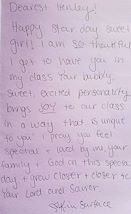 Dearest Henley!
Happy Star day sweet
girl! I am so thankful
I got to have you in
my class! Your bubbly,
sweet, excited personality
brings JOY to our class
in a way that is unique
to you. I pray you feel
special + loved by me, your
family + God on this special
day + grow closer + closer to
your Lord and Savior.
Surface